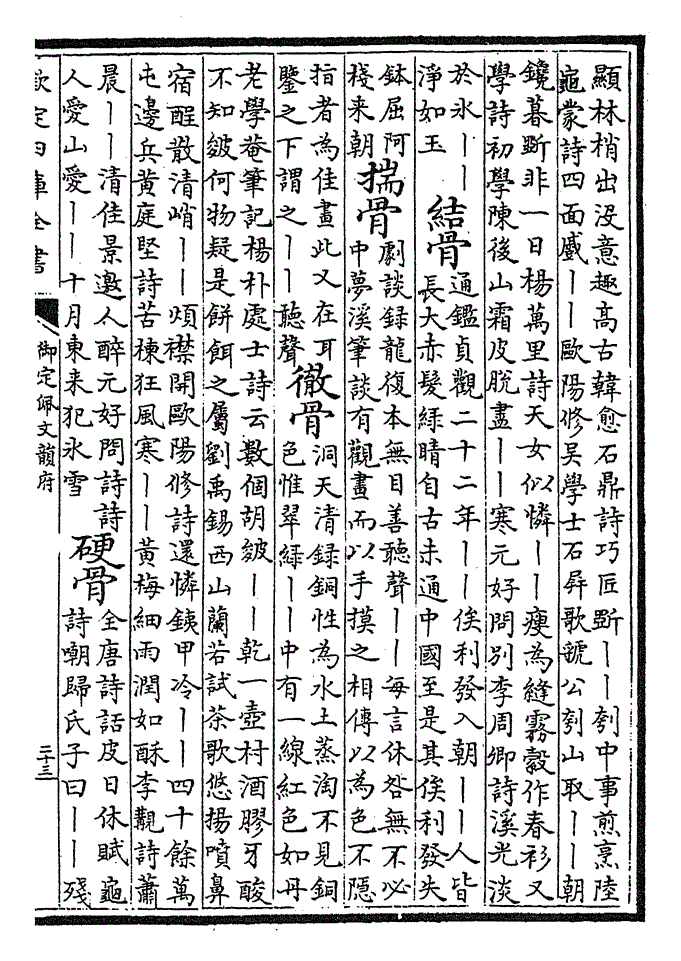 顯林梢出没意趣高古韓愈石鼎詩巧匠斲丨丨刳中事煎烹陸
龜蒙詩四面蹙丨丨歐陽修吴學士石屏歌虢公刳山取丨丨朝
鑱暮斲非一日楊萬里詩天女似憐丨丨瘦為縫霧縠作春衫又
學詩初學陳後山霜皮脫盡丨丨寒元好問別李周卿詩溪光淡
於氷丨丨
淨如玉
結骨
通鑑貞觀二十二年丨丨俟利發入朝丨丨人皆
長大赤髮緑睛自古未通中國至是其俟利發失
鉢屈阿
棧来朝
揣骨
劇談録龍復本無目善聽聲丨丨每言休咎無不必
中夢溪筆談有觀畫而以手摸之相傳以為色不隱
指者為佳畫此又在耳
鑒之下謂之丨丨聽聲
徹骨
洞天清録銅性為水土蒸淘不見銅
色惟翠緑丨丨中有一線紅色如丹
老學菴筆記楊朴處士詩云數個胡皴丨丨乾一壺村酒膠牙酸
不知皴何物疑是餅餌之屬劉禹錫西山蘭若試茶歌悠揚噴鼻
宿酲散清峭丨丨煩襟開歐陽修詩還憐鐵甲冷丨丨四十餘萬
屯邊兵黄庭堅詩苦楝狂風寒丨丨黄梅細雨潤如酥李觀詩蕭
晨丨丨清佳景邀人醉元好問詩詩
人愛山愛丨丨十月東来犯氷雪
硬骨
全唐詩話皮日休賦龜
詩嘲歸氏子曰丨丨殘
欽定四庫全書
御定佩文韻府
二十三